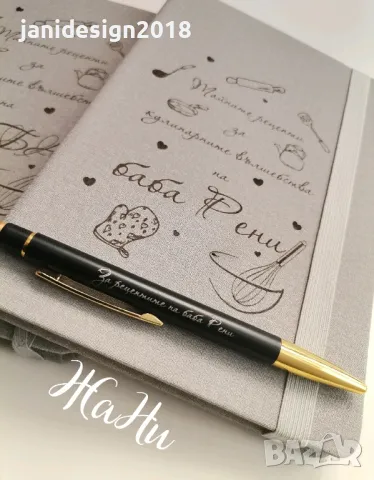 janidesign2018
Тайните рецепти
за
кулинарните вълшебства
на
баба Рени
За рецептите на баба Рени
ЖаНи
BAZAR